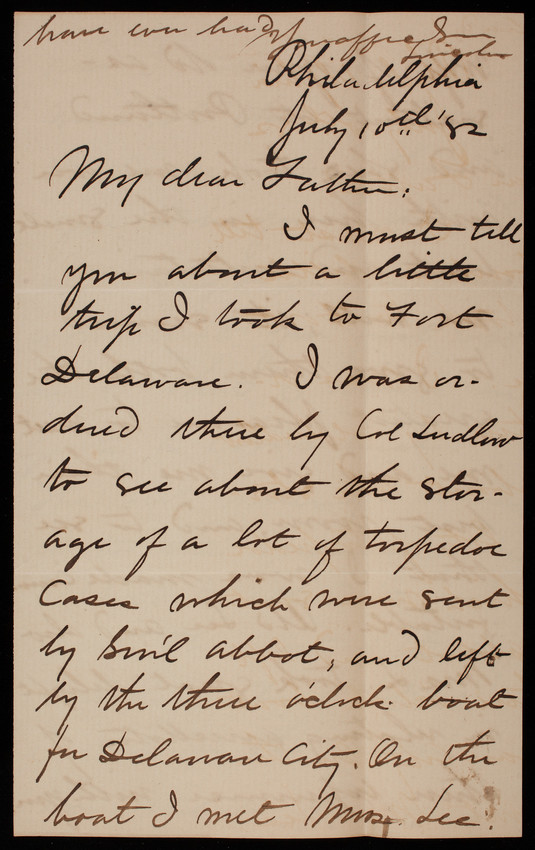 have ever had
Philadelphia
July 10th '82
My dear Father:
I must tell
you about a little
trip I took to Fort
Delaware. I was or-
dered there by Col Ludlow
to see about the stor-
age of a lot of torpedoe
Cases which were sent
by Gen'l Abbot, and left
by the three o'clock boat
for Delaware City. On the
boat I met Mrs. Lee.